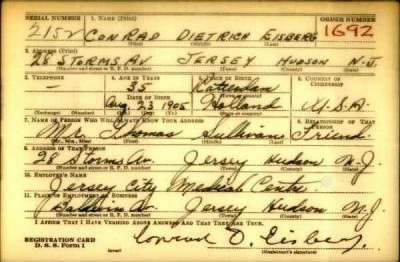 SERIAL NUMBER 1. NAME (Print) ORDER NUMBER
2152 CONRAD DIETRICH EISBERG 1692
(First) (Middle) (Last)
2. ADDRESS (Print)
28 STORMS AV JERSEY HUDSON N-J
(Number and street or R. F. D. number) (Town) (County) (State)
3. TELEPHONE 4. AGE IN YEARS 5. PLACE OF BIRTH 6. COUNTRY OF CITIZENSHIP
- 35 Rotterdam
DATE OF BIRTH
Aug 23 1905 Holland U.S.A.
(Exchange) (Number) (Mo.) (Day) (Yr.) (State or country)
7. NAME OF PERSON WHO WILL ALWAYS KNOW YOUR ADDRESS 8. RELATIONSHIP OF THAT PERSON
Mr. Thomas Sullivan Friend
(Mr., Mrs., Miss) (First) (Middle) (Last)
9. ADDRESS OF THAT PERSON
28 Storms Av. Jersey Hudson N.J.
(Number and street or R. F. D. number) (Town) (County) (State)
10. EMPLOYER'S NAME
Jersey City Medical Centre
11. PLACE OF EMPLOYMENT OR BUSINESS
Baldwin Av. Jersey Hudson N.J.
(Number and street or R. F. D. number) (Town) (County) (State)
I AFFIRM THAT I HAVE VERIFIED ABOVE ANSWERS AND THAT THEY ARE TRUE.
REGISTRATION CARD
D. S. S. Form 1 Conrad D. Eisberg
(Registrant's signature)